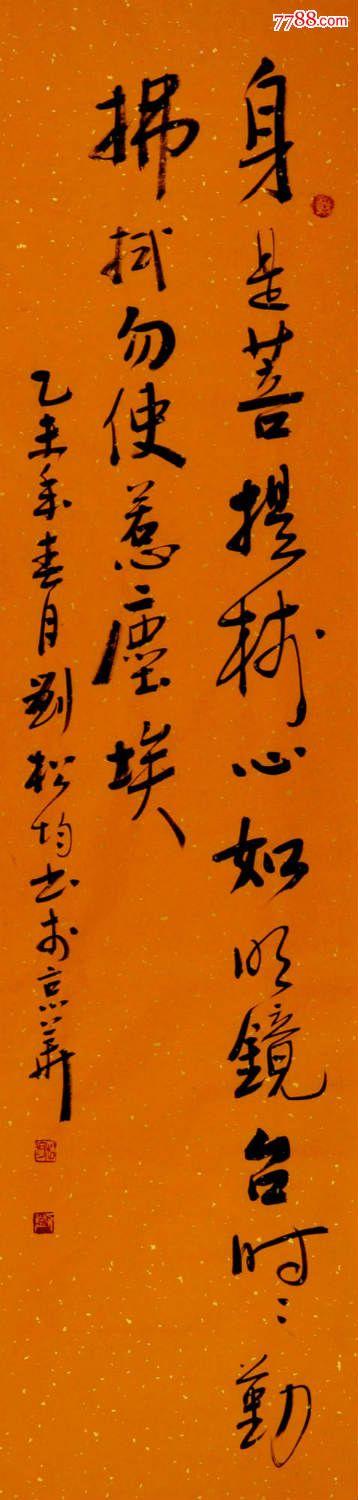 7788.com
身是菩提树心如明镜台时:勤
拂拭勿使惹尘埃
乙未年春月劉松均书於京華